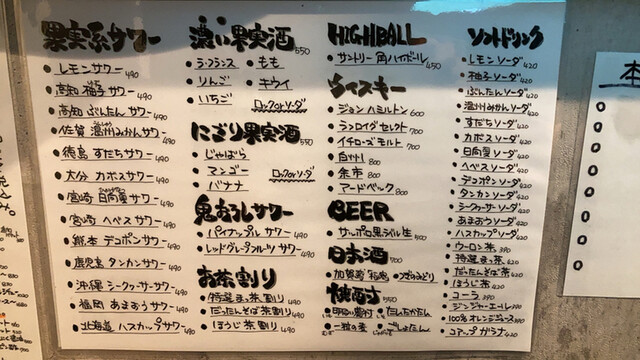 果実系サワー
レモンサワー 490
高知 柚子サワー 490
高知 ぶんたんサワー 490
佐賀 温州みかんサワー 490
徳島 すだちサワー 490
大分 カボスサワー 490
宮崎 日向夏サワー 490
宮崎 ヘベスサワー 490
熊本 デコポンサワー 490
鹿児島 タンカンサワー 490
沖縄 シークァーサーサワー 490
福岡 あまおうサワー 490
北海道 ハスカップサワー 490
濃い果実酒 550
ラ・フランス
もも
りんご
キウイ
いちご
ロックorソーダ
にごり果実酒 550
じゃばら
マンゴー
バナナ
ロックorソーダ
鬼おろしサワー
パイナップルサワー 490
レッドグレープフルーツサワー 490
お茶割り
特選まっ茶割り 420
だったんそば茶割り 420
ほうじ茶割り 420
HIGHBALL
サントリー 角ハイボール 450
ウィスキー
ジョン ハミルトン 600
ラングロイグ セレクト 700
イチローズ モルト 700
白州 800
余市 800
アードベック 800
BEER
サッポロ黒ラベル生 500
日本酒 700
加賀鳶
つきのみどり
焼酎 500
明るい農村
だんだかたん
一粒の麦
ごしょだん
ソフトドリンク
レモンソーダ 420
柚子ソーダ 420
ぶんたんソーダ 420
温州みかんソーダ 420
すだちソーダ 420
カボスソーダ 420
日向夏ソーダ 420
ヘベスソーダ 420
デコポンソーダ 420
タンカンソーダ 420
シークァーサーソーダ 420
あまおうソーダ 420
ハスカップソーダ 420
ウーロン茶 390
特選まっ茶 390
だったんそば茶 390
ほうじ茶 390
コーラ 390
ジンジャーエール 390
100%オレンジジュース 390
コアップガラナ 420
本